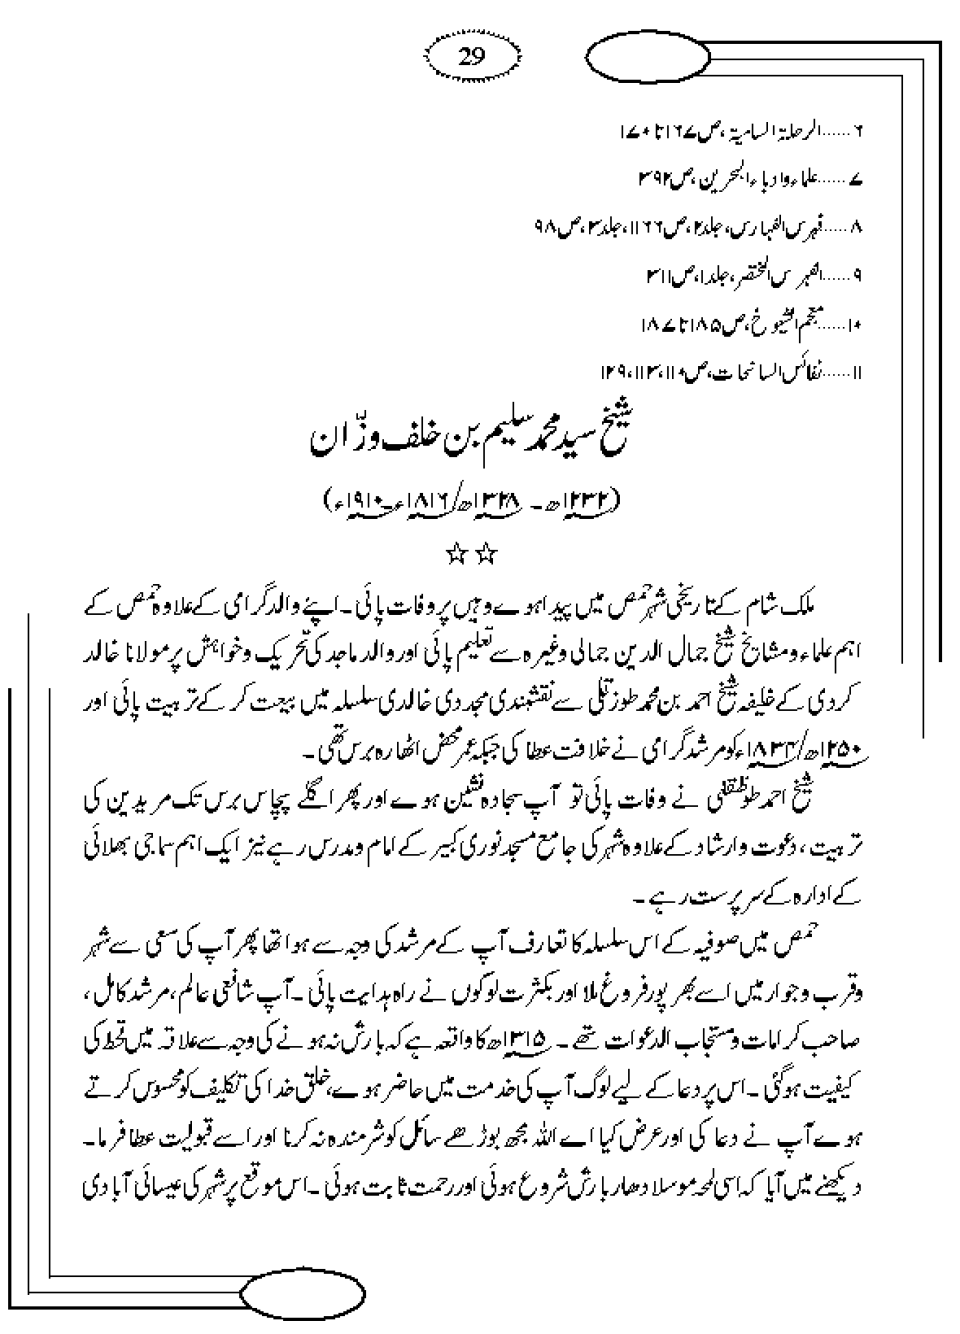 29
۶......الرحلة السامیة،ص۱۶۷تا۱۷۰
۷......علماء وادباء البحرین،ص۳۹۲
۸......فہرس الفہارس،جلد۲،ص۱۱۶۶،جلد۳،ص۹۸
۹......الفہرس المختصر،جلد۱،ص۳۱۱
۱۰......معجم الشیوخ،ص۱۸۵تا۱۸۷
۱۱......نفائس السانحات،ص۱۱۰،۱۱۳،۱۲۹
شیخ سید محمد سلیم بن خلف وزّان
(۱۲۳۲ھ۔ ۱۳۲۸ھ/۱۸۱۶ء۔۱۹۱۰ء)
☆☆
ملک شام کے تاریخی شہر حمص میں پیدا ہوے وہیں پر وفات پائی۔ اپنے والد گرامی کے علاوہ حمص کے
اہم علماء و مشایخ شیخ جمال الدین جمالی وغیرہ سے تعلیم پائی اور والد ماجد کی تحریک وخواہش پر مولانا خالد
کردی کے خلیفہ شیخ احمد بن محمد طوزقلی سے نقشبندی مجددی خالدی سلسلہ میں بیعت کر کے تربیت پائی اور
۱۲۵۰ھ/۱۸۳۴ء کو مرشد گرامی نے خلافت عطا کی جبکہ عمر محض اٹھارہ برس تھی۔
شیخ احمد طوظقلی نے وفات پائی تو آپ سجادہ نشین ہوے اور پھر اگلے پچاس برس تک مریدین کی
تربیت، دعوت وارشاد کے علاوہ شہر کی جامع مسجد نوری کبیر کے امام و مدرس رہے نیز ایک اہم سماجی بھلائی
کے ادارہ کے سرپرست رہے۔
حمص میں صوفیہ کے اس سلسلہ کا تعارف آپ کے مرشد کی وجہ سے ہوا تھا پھر آپ کی سعی سے شہر
وقرب وجوار میں اسے بھر پور فروغ ملا اور بکثرت لوگوں نے راہ ہدایت پائی۔ آپ شافعی عالم، مرشد کامل،
صاحب کرامات و مستجاب الدعوات تھے۔ ۱۳۱۵ھ کا واقعہ ہے کہ بارش نہ ہونے کی وجہ سے علاقہ میں قحط کی
کیفیت ہوگئی۔ اس پر دعا کے لیے لوگ آپ کی خدمت میں حاضر ہوے، خلق خدا کی تکلیف کو محسوس کرتے
ہوے آپ نے دعا کی اور عرض کیا اے اللہ مجھ بوڑھے سائل کو شرمندہ نہ کرنا اور اسے قبولیت عطا فرما۔
دیکھنے میں آیا کہ اسی لمحہ موسلا دھار بارش شروع ہوئی اور رحمت ثابت ہوئی۔ اس موقع پر شہر کی عیسائی آبادی